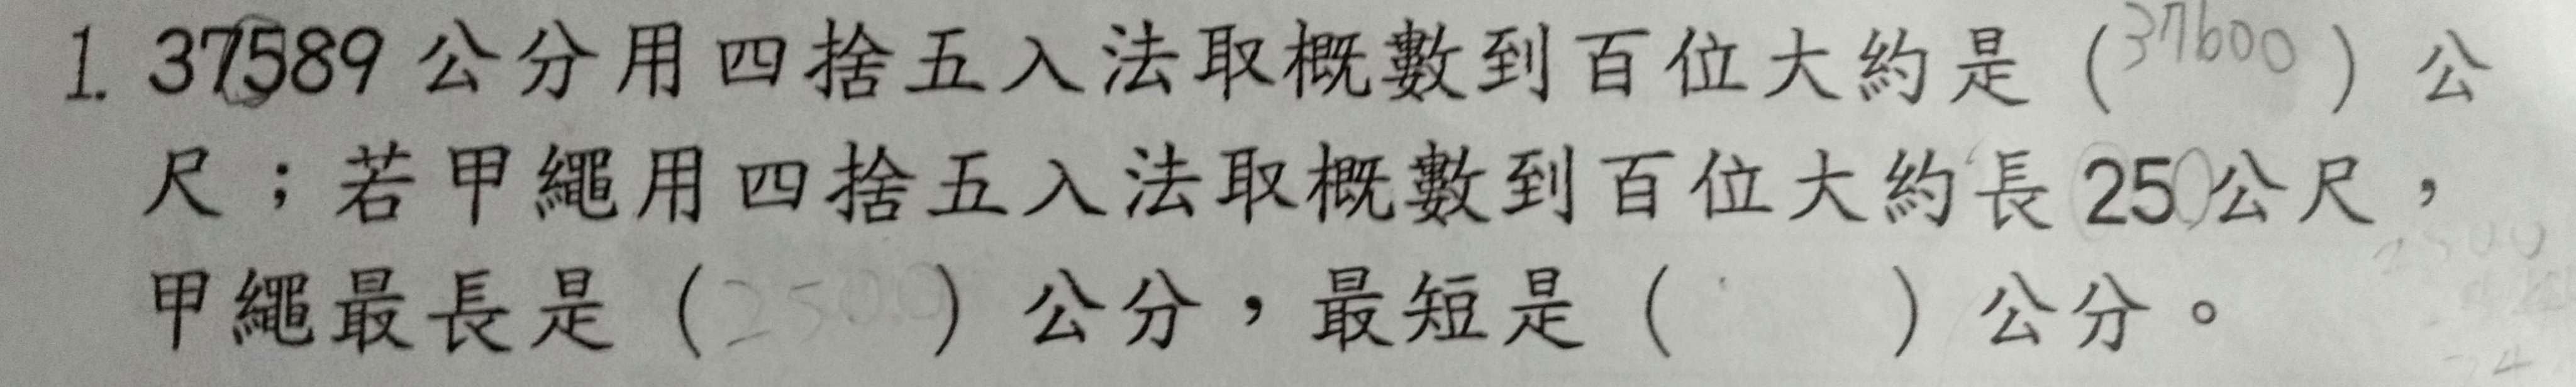 1. 37589公分用四捨五入法取概數到百位大約是（37600）公
尺；若甲繩用四捨五入法取概數到百位大約長25公尺，
甲繩最長是（2500）公分，最短是（ ）公分。
2500